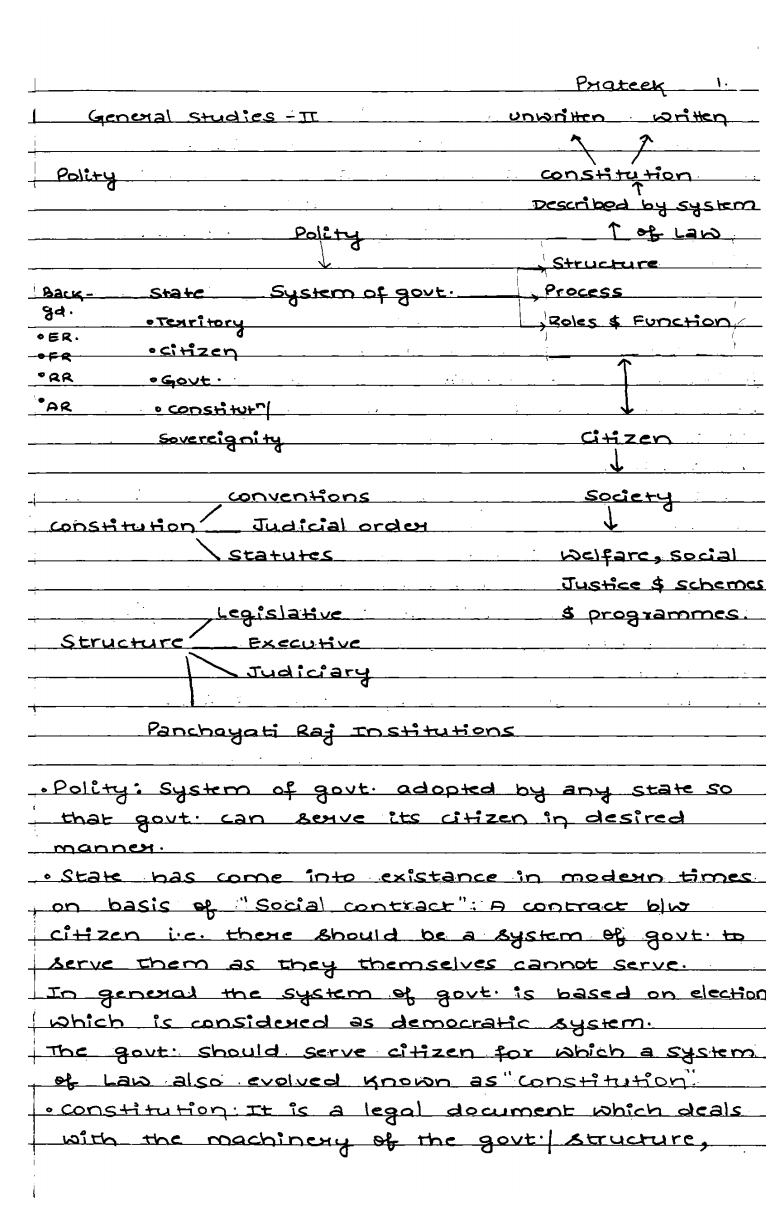 Prateek 1.
General Studies - II unwritten written
Polity constitution
Described by system
Polity of Law
Structure
Back- State System of govt. Process
gd.
• Territory Roles & Function
• ER.
• FR • citizen
• RR • Govt.
• AR • constitutn/
Sovereignity citizen
conventions Society
constitution Judicial order
Statutes Welfare, Social
Justice & schemes
Legislative & programmes.
Structure Executive
Judiciary
Panchayati Raj Institutions
• Polity: System of govt. adopted by any state so
that govt. can serve its citizen in desired
manner.
• State has come into existance in modern times
on basis of "Social contract": A contract b/w
citizen i.e. there should be a system of govt. to
serve them as they themselves cannot serve.
In general the system of govt. is based on election
which is considered as democratic system.
The govt. should serve citizen for which a system
of Law also evolved known as "constitution".
• constitution: It is a legal document which deals
with the machinery of the govt./ structure,